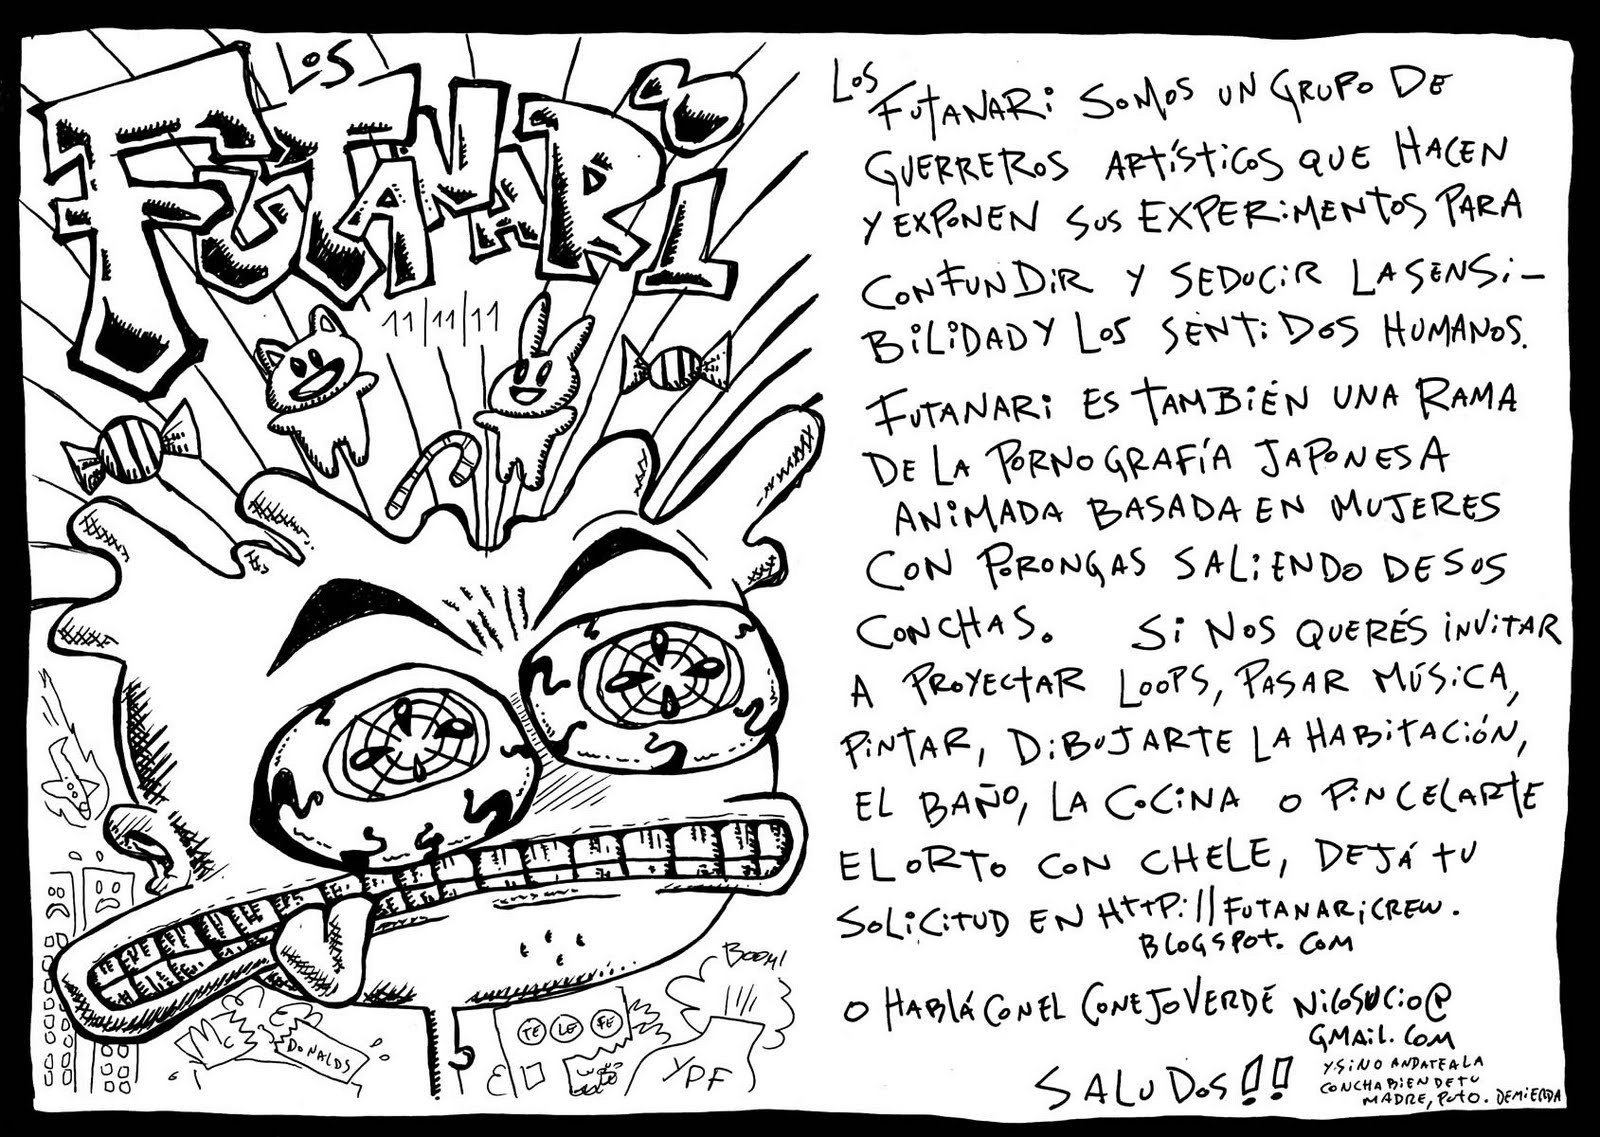 LOS
FUTANARI
11/11/11
TE LE FE
BOOM!
DONALDS
YPF
LOS FUTANARI SOMOS UN GRUPO DE
GUERREROS ARTÍSTICOS QUE HACEN
Y EXPONEN SUS EXPERIMENTOS PARA
CONFUNDIR Y SEDUCIR LA SENSI-
BILIDAD Y LOS SENTIDOS HUMANOS.
FUTANARI ES TAMBIÉN UNA RAMA
DE LA PORNOGRAFÍA JAPONESA
ANIMADA BASADA EN MUJERES
CON PORONGAS SALIENDO DE SUS
CONCHAS. SI NOS QUERÉS INVITAR
A PROYECTAR LOOPS, PASAR MÚSICA,
PINTAR, DIBUJARTE LA HABITACIÓN,
EL BAÑO, LA COCINA O PINCELARTE
EL ORTO CON CHELE, DEJÁ TU
SOLICITUD EN HTTP://FUTANARICREW.
BLOGSPOT.COM
O HABLÁ CON EL CONEJO VERDE NICOSUCIO@
GMAIL.COM
SALUDOS!!
Y SI NO ANDATE A LA
CONCHA BIEN DE TU
MADRE, PUTO. DEMIERDA